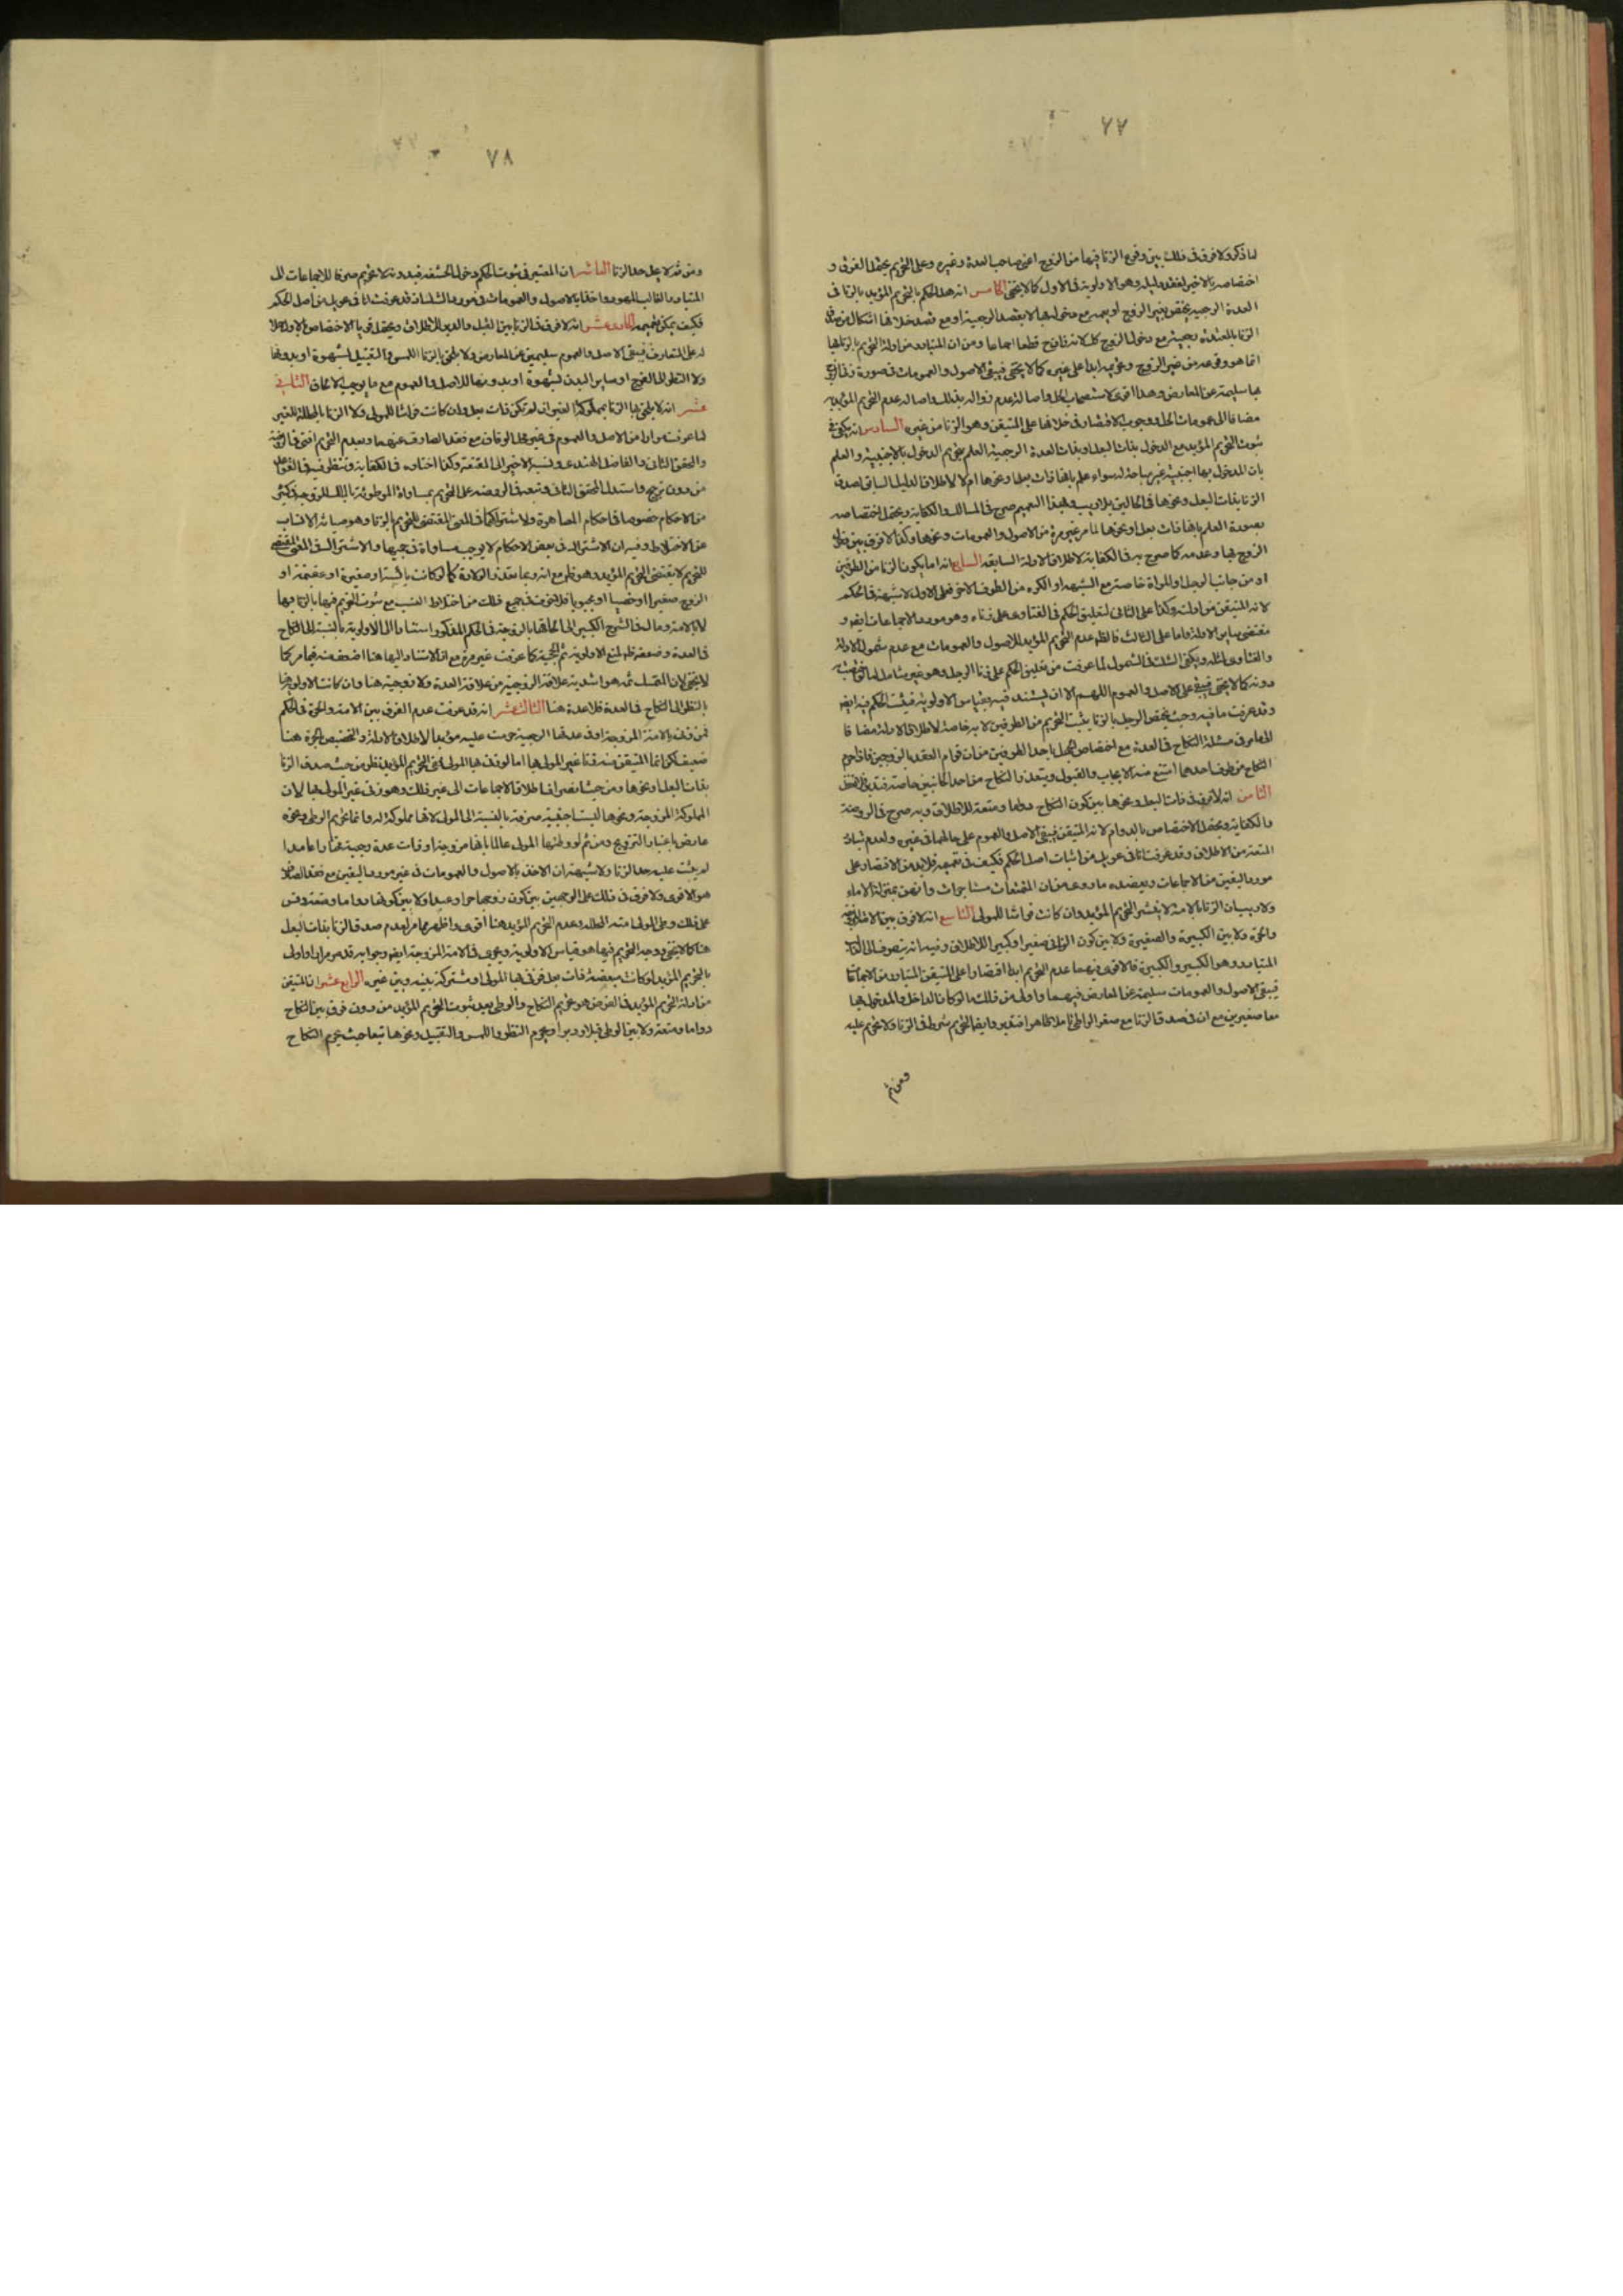 ٧٧
لما ذكر ولا فرق فى ذلك بين وقوع الزنا فيها من الزوج اعنى صاحب العدة وغيره وعلى التحريم يحتمل الفرق و
اختصاصه بالاخير لفقد دليله وهو الاولوية فى الاول كما لا يخفى الخامس ان هذا الحكم بالتحريم المؤبد بالزنا فى
العدة الرجعية يختص بغير الزوج او يعمه مع دخوله بها لا بقصد الرجعية او مع قصد خلافها اشكال من صدق
الزنا بالمعتدة رجعية مع دخول الزوج كك لانه زان ح قطعا اجماعا ومن ان المتبادر من ادلة التحريم بالزنا بها
انما هو وقوعه من غير الزوج وتحريمه ابدا على غيره كما لا يخفى فيبقى الاصول والعمومات فى صورة زنا الزوج
بها سليمة عن المعارض وهذا اقوى لاستصحاب الحل واصالة عدم زواله بذلك واصالة عدم التحريم المؤبد به
مضافا الى عمومات الحل ووجوب الاقتصار فى خلافها على المتيقن وهو الزنا من غيره السادس انه يكفى فى
ثبوت التحريم المؤبد مع الدخول بذات البعل او بذات العدة الرجعية العلم بتحريم الدخول بالاجنبية والعلم
بان المدخول بها اجنبية غير مباحة له سواء علم بانها ذات بعل ونحوها ام لا لاطلاق الدليل السابق لصدق
الزنا بذات البعل ونحوها فى الحالين بلا ريب وبهذا التعميم صرح فى المسالك والكفاية ويحتمل اختصاصه
بصورة العلم بانها ذات بعل او نحوها لما مر غير مرة من الاصول والعمومات ونحوها وكذا لا فرق بين دخول
الزوج بها وعدمه كما صرح به فى الكفاية لاطلاق الادلة السابقه السابع انه اما يكون الزنا من الطرفين
او من جانب الرجل او المراة خاصة مع الشبهة او الكره من الطرف الاخر فعلى الاول لا شبهة فى الحكم
لانه المتيقن من ادلته وكذا على الثانى لتعليق الحكم فى الفتاوى على زناه وهو مورد الاجماعات ايضا و
مقتضى ساير الادلة واما على الثالث فالظ عدم التحريم المؤبد للاصول والعمومات مع عدم شمول الادلة
والفتاوى لمثله ويكفى الشك فى الشمول لما عرفت من تعليق الحكم على زنا الرجل وهو غير شامل لما
دونه كما لا يخفى فيبقى على الاصل والعموم اللهم الا ان يستند فيه بقياس الاولوية فيثبت الحكم فيه ايضا
وقد عرفت ما فيه وحيث يختص الرجل بالزنا يثبت التحريم من الطرفين لا به خاصة لاطلاق الادلة مضافا
الى ما مر فى مسئلة النكاح فى العدة مع اختصاص الجهل باحد الطرفين من ان قوام العقد بالزوجين فاذا حرم
النكاح من طرف احدهما امتنع منه الايجاب والقبول ويتعذر النكاح من احد الجانبين خاصة
الثامن انه لا فرق فى ذات البعل ونحوها بين كون النكاح دواما ومتعة للاطلاق وبه صرح فى الروضة
والكفاية ويحتمل الاختصاص بالدوام لانه المتيقن فيبقى الاصل والعموم على حالهما فى غيره ولعدم تبادر
المتعة من الاطلاق وقد عرفت انا فى عويل من اثبات اصل الحكم فكيف فى تعميمه فلا بد من الاقتصار على
مورد اليقين من الاجماعات ويعضده ما روى من ان المتمتعات مستاجرات وانهن بمنزلة الاماء
ولا ريب ان الزنا بالامة لا ينشر التحريم المؤبد وان كانت فراشا للمولى التاسع انه لا فرق بين الامة
والحرة ولا بين الكبيرة والصغيرة ولا بين كون الزانى صغيرا وكبيرا للاطلاق وفيه انه ينصرف الى
المتبادر وهو الكبير والكبيرة فالاقوى فيهما عدم التحريم ابدا اقتصارا على المتيقن المتبادر من الاجماعات
فيبقى الاصول والعمومات سليمة عن المعارض فيهما واولى من ذلك ما لو كانا الداخل والمدخول بها
معا صغيرين مع ان فى صدق الزنا مع صغر الواطى تاملا ظاهرا فتدبر وايضا التحريم شرط فى الزنا ولا تحريم عليه
ومن ثم
٧٨
ومن ثم لا يجد حد الزنا العاشر ان المعتبر فى ثبوت الحكم دخول الحشفه فبدونه لا تحريم صرفا للاجماعات الى
المتبادر الغالب المعهود واخذا بالاصول والعمومات فى مورد الشك
فكيف يمكن تعميمه الحادى عشر انه لا فرق فى الزنا بين القبل والدبر للاطلاق ويحتمل قويا الاختصاص بالاول
له على المتعارف فيبقى الاصل والعموم سليمين عن المعارض ولا يلحق بالزنا اللمس والتقبيل لشهوة او بدونها
ولا النظر الى الفرج او ساير البدن لشهوة او بدونها للاصل والعموم مع ما يوجب الالحاق الثانى
عشر انه لا يلحق بها الزنا بمملوكة الغير ان لم تكن ذات بعل وان كانت فراشا للمولى ولا الزنا بالمحللة للغير
لما عرفت مرارا من الاصل والعموم فى غير محل الوفاق مع فقد الصارف عنهما وبعدم التحريم افتى فى الروضة
والمحقق الثانى والفاضل الهندى ونسبه الاخير الى المقنعة وكذا اختاره فى الكفاية وتنظر فيه فى القواعد
من دون ترجيح واستدل المحقق الثانى وتبعه فى الروضة على التحريم بمساواة الموطوئة بالملك للزوجة فى كثير
من الاحكام خصوصا فى احكام المصاهرة ولاشتراكهما فى المعنى المقتضى للتحريم بالزنا وهو صيانة الانساب
عن الاختلاط وفيه ان الاشتراك فى بعض الاحكام لا يوجب مساواة فى جميعها والاشتراك فى المعنى المقتضى
للتحريم لا يقتضى التحريم المؤبد وهو ظ مع انه ربما تعذر الولادة كما لو كانت يائسة او صغيرة او عقيمة او
الزوج صغيرا او خصيا او مجبوبا فلا يتحقق فى جميع ذلك من اختلاط النسب مع ثبوت التحريم فيها بالزنا فيها
لا بالامة ومال فى الشرح الكبير الى الحاقها بالزوجة فى الحكم المذكور استنادا الى الاولوية بالنسبة الى النكاح
فى العدة وضعفه ظ لمنع الاولوية ثم الحجية كما عرفت غير مرة مع ان الاستناد اليها هنا اضعف منه فيما مر كما
لا يخفى لان المتمسك ثمه هو اشدية علاقة الزوجية من علاقة العدة ولا زوجية هنا وان كانت الاولوية هنا
بالنظر الى النكاح فى العدة فلا عدة هنا الثالث عشر انه قد عرفت عدم الفرق بين الامة والحرة فى الحكم
فمن زنى بالامة المزوجة او فى عدتها الرجعية حرمت عليه مؤبدا لاطلاق الادلة والتخصيص بالحرة هنا
ضعيف لكن انما المتيقن منه زنا غير المولى بها اما لو زنى بها المولى ففى التحريم المؤبد نظر من حيث صدق الزنا
بذات البعل ونحوها ومن حيث انصراف اطلاق الاجماعات الى غير ذلك وهو زنى غير المولى بها لان
المملوكة المزوجة ونحوها ليست اجنبية صرفة بالنسبة الى المولى لانها مملوكة له وانما تحريم الوطى ونحوه
عارض باعتبار التزويج ومن ثم لو وطئها المولى عالما بانها مزوجة او ذات عدة رجعية مختارا عامدا
لم يثبت عليه حد الزنا ولا شبهة ان الاخذ بالاصول والعمومات فى غير مورد اليقين مع فقد الصارف
هو الاقوى ولا فرق فى ذلك على الوجهين بين كون زوجها حرا وعبدا ولا بين كونها دواما ومتعة وقس
على ذلك وطى المولى امته المحللة وعدم التحريم المؤبد هنا اقوى واظهر مما مر لعدم صدق الزنا بذات البعل
هنا كما لا يخفى ووجه التحريم فيها هو قياس الاولوية ويجرى فى الامة المزوجة ايضا وجوابه قد مر مرارا واولى
بالتحريم المؤبد لو كانت مبعضة ذات بعل فزنى بها المولى او مشتركة بينه وبين غيره الرابع عشر ان المتيقن
من ادلة التحريم المؤبد فى الفرض هو تحريم النكاح والوطى بعد ثبوت التحريم المؤبد من دون فرق بين النكاح
دواما ومتعة ولا بين الوطى قبلا ودبرا ويحرم النظر واللمس والتقبيل ونحوها تبعا حيث يحرم النكاح